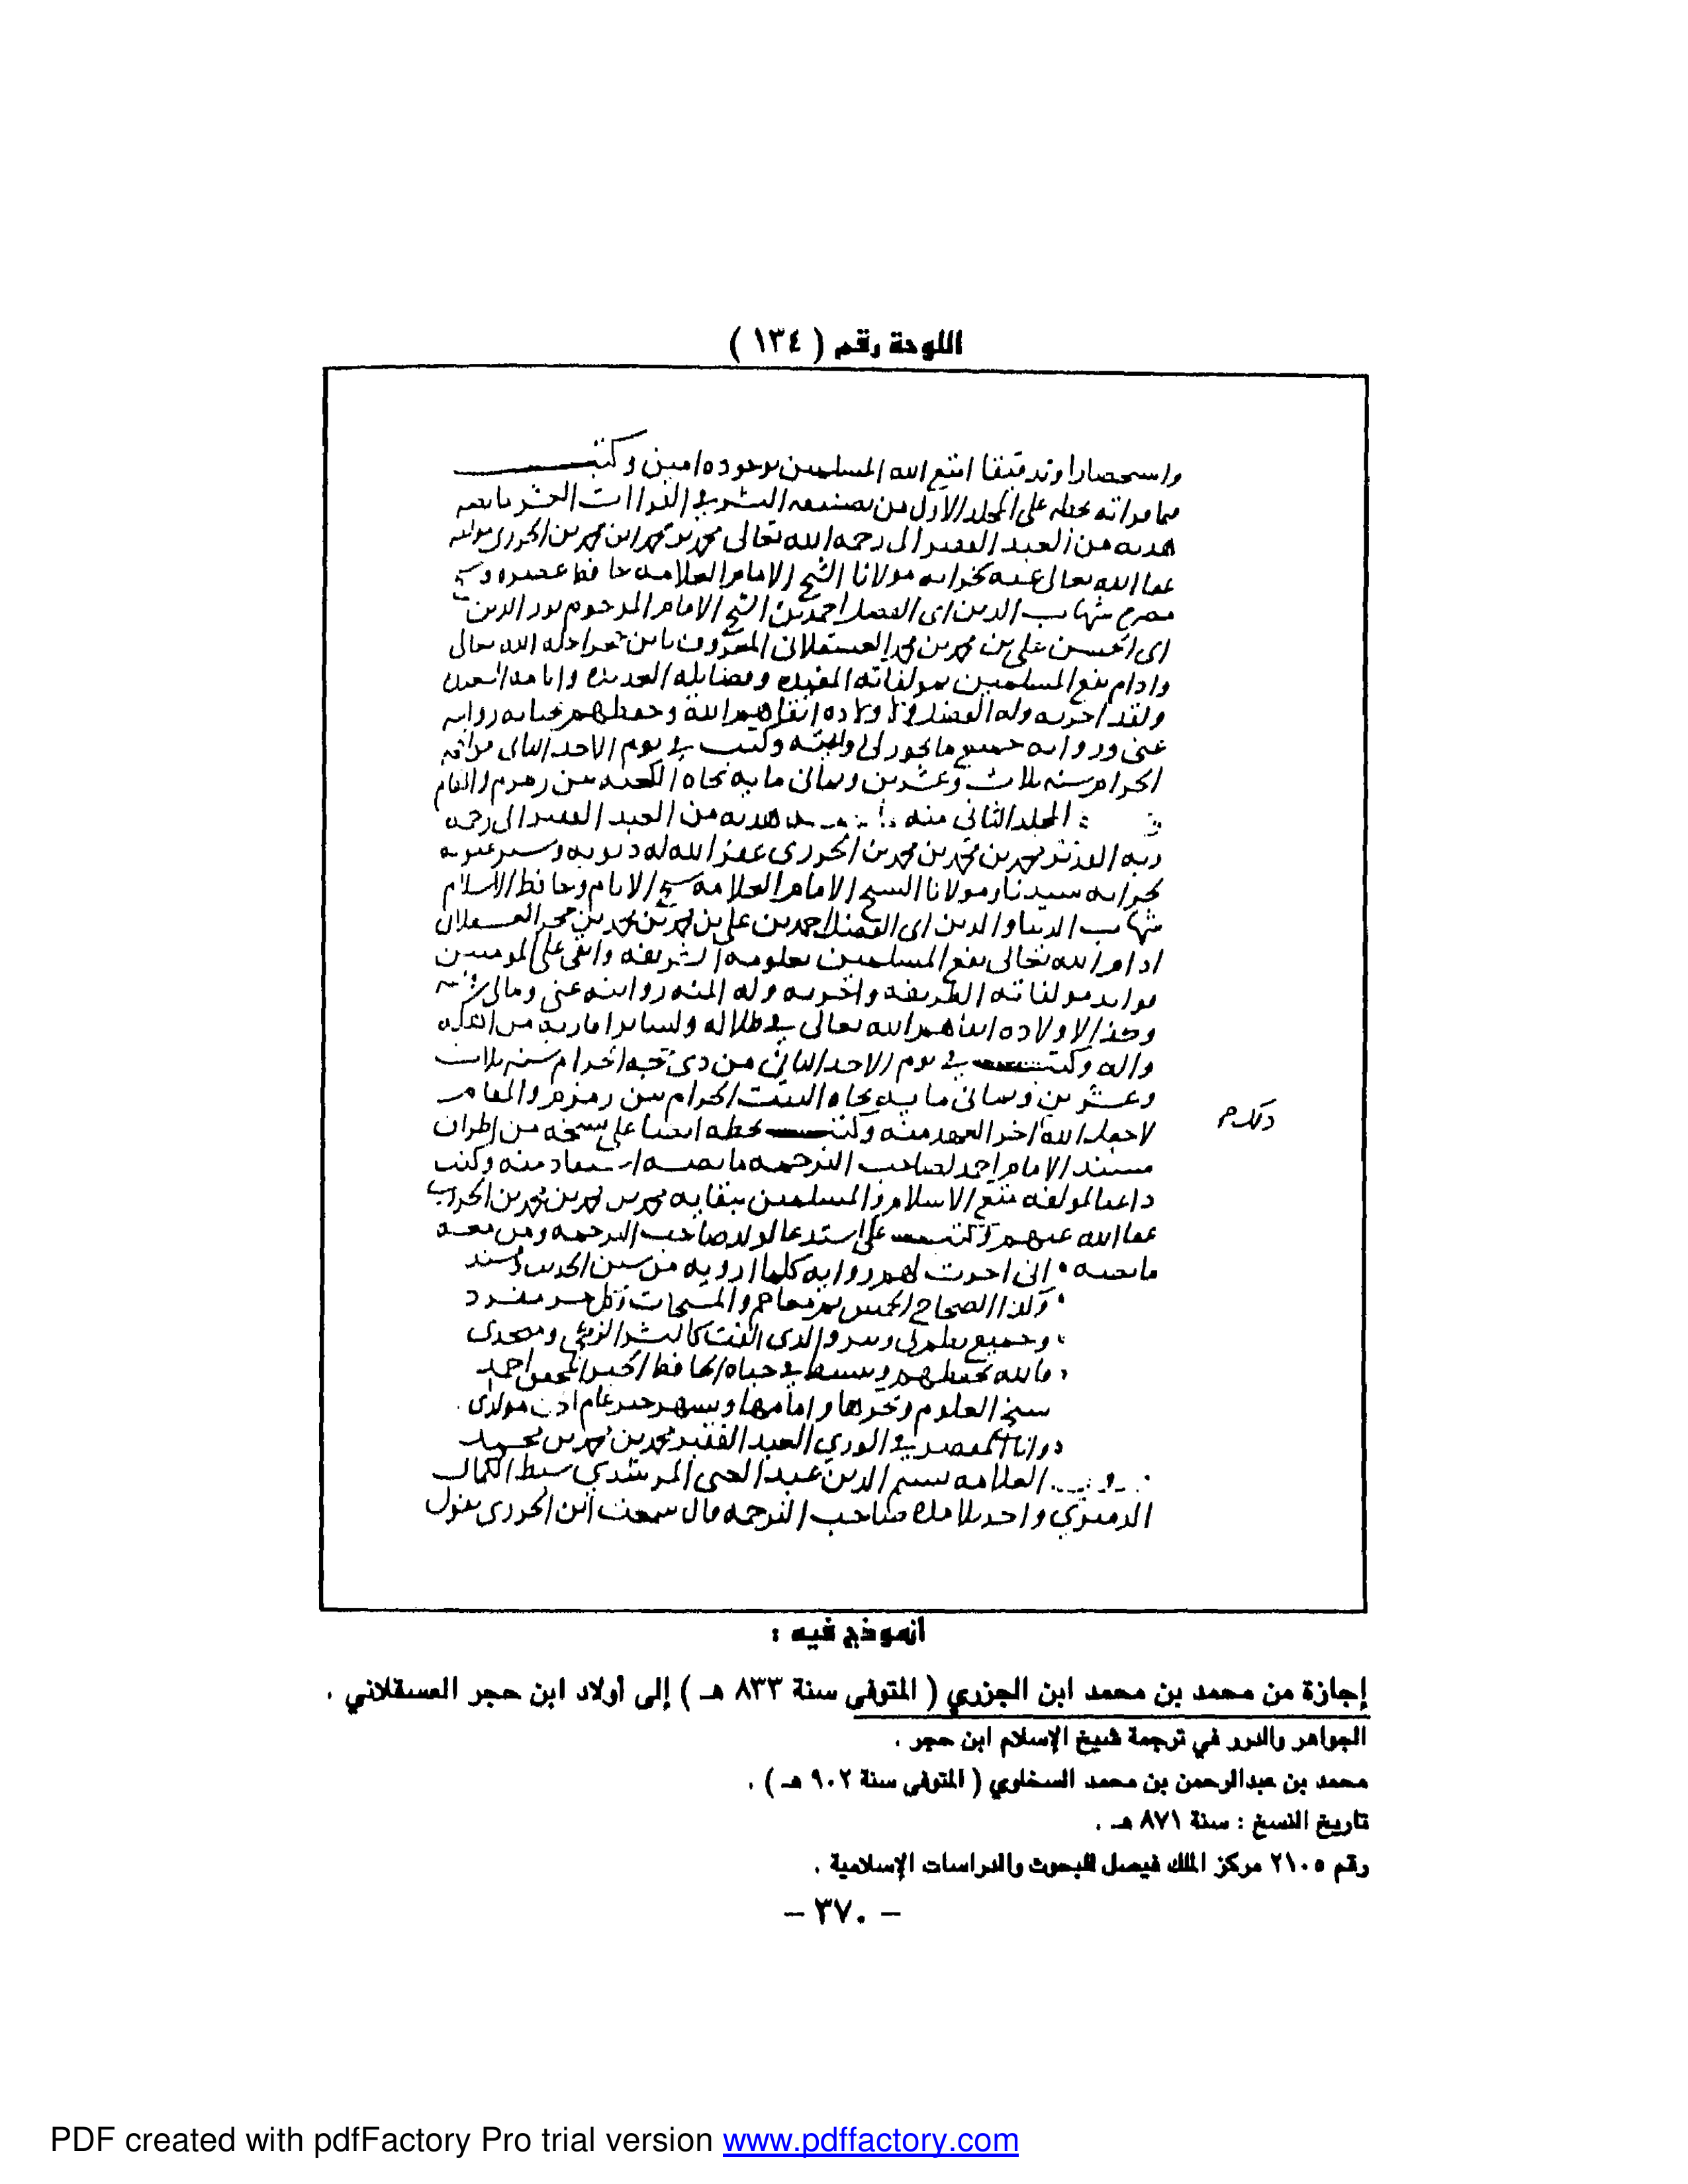 اللوحة رقم ( ١٣٤ )
واستحضارا وتدقيقا امتع الله المسلمين بوجوده امين وكتب
مما قراته بخطه على المجلد الاول من تصنيفه النشر في القراات العشر ما نصه
هديه من العبد الفقير الى رحمه الله تعالى محمد بن محمد بن محمد بن الجزري مولفه
عفا الله تعالى عنه لخزانه مولانا الشيخ الامام العلامه حافظ عصره
شهاب الدين ابى الفضل احمد بن الشيخ الامام المرحوم نور الدين
ابى الحسن على بن محمد بن محمد العسقلانى المعروف بابن حجر اجله الله تعالى
وادام نفع المسلمين بمولفاته المفيده وفضايله العديده وايامه السعيده
ولقد اجزته وله الفضل ولاولاده ابقاهم الله وحفظهم بحياته روايته
عنى وروايه جميع ما يجوز لى وكتب فى يوم الاحد الثانى
الحرام سنه ثلاث وعشرين وثمانى مايه تجاه الكعبه بين زمزم والمقام
المجلد الثانى منه هديه من العبد الفقير الى رحمه
ربه محمد بن محمد بن محمد بن الجزرى غفر الله له ذنوبه وستر عيوبه
لخزانه سيدنا ومولانا الشيخ الامام العلامه شيخ الانام وحافظ الاسلام
شهاب الدنيا والدين ابى الفضل احمد بن على بن محمد بن محمد بن حجر العسقلانى
ادام الله تعالى نفع المسلمين بعلومه الشريفه وابقى على المومنين
فوايد مولفاته الظريفه واجزته وله المنه روايته عنى ومالى
وكذا لاولاده ابقاهم الله تعالى فى ظلاله ولساير اقاربه من
واله وكتب فى يوم الاحد الثانى من ذى حجه الحرام سنه ثلاث
وعشرين وثمانى مايه تجاه البيت الحرام بين زمزم والمقام
لا جعله الله اخر العهد منه وكتب بخطه ايضا على نسخه من اطراف
مسند الامام احمد لصاحب الترجمه ما نصه استفاد منه وكتب
داعيا لمولفه متع الاسلام والمسلمين ببقايه محمد بن محمد بن محمد بن الجزرى
عفا الله عنهم وكتب على استدعا لولد صاحب الترجمه ومن معه
ما نصه انى اجزت لهم روايه كلما ارويه من سنن الحديث ومسند
وكذا الصحاح الخمس ثم معاجم والمشيخات وكل جزء مفرد
وجميع نظم لى ونثر والذى الفت كالنشر الزكى ومنجدى
فالله يحفظهم ويبسط فى حياه الحافظ الحبر المحقق احمد
العلوم وبحرها وامامها
وانا المقصر فى الورى العبد الفقير محمد بن محمد بن محمد
العلامه نسيم الدين عبد الغنى المرشدي سبط الكمال
الدميري واحد تلامذه صاحب الترجمه قال سمعت ابن الجزرى يقول
أنموذج فيه :
إجازة من محمد بن محمد ابن الجزري ( المتوفى سنة ٨٣٣ هـ ) إلى أولاد ابن حجر العسقلاني .
الجواهر والدرر في ترجمة شيخ الإسلام ابن حجر .
محمد بن عبدالرحمن بن محمد السخاوي ( المتوفى سنة ٩٠٢ هـ ) .
تاريخ النسخ : سنة ٨٧١ هـ .
رقم ٢١٠٥ مركز الملك فيصل للبحوث والدراسات الإسلامية .
– ٣٧٠ –
PDF created with pdfFactory Pro trial version www.pdffactory.com